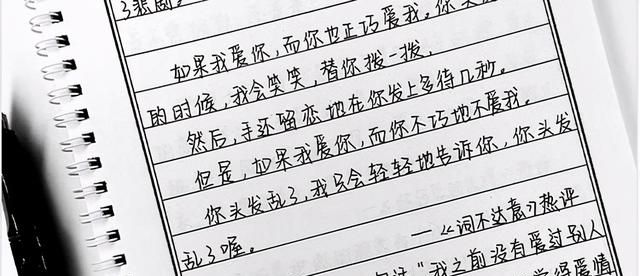 了悲剧。
如果我爱你，而你也正巧爱我。你头
的时候，我会笑笑，替你拨一拨，
然后，手还留恋地在你发上多待几秒。
但是，如果我爱你，而你不巧地不爱我。
你头发乱了，我只会轻轻地告诉你，你头发
乱了喔。
——《词不达意》热评
"我之前没有爱过别人
爱情